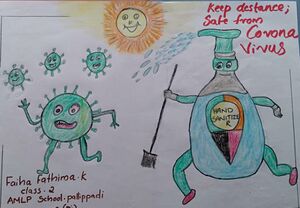 Keep destance;
Safe from
Corona
Virus
HAND
SANITIZE
R
Faiha Fathima.K
class.2
AMLP School.pallippadi